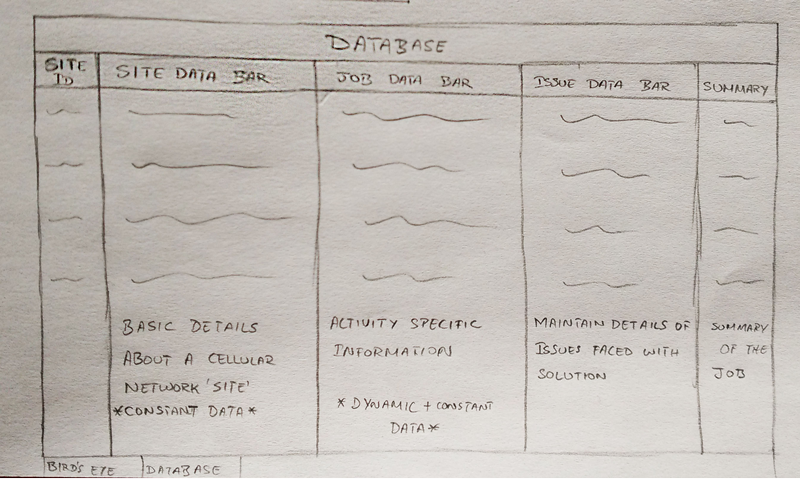 DATABASE
SITE ID
SITE DATA BAR
JOB DATA BAR
ISSUE DATA BAR
SUMMARY
BASIC DETAILS
ABOUT A CELLULAR
NETWORK 'SITE'
*CONSTANT DATA*
ACTIVITY SPECIFIC
INFORMATION
* DYNAMIC + CONSTANT
DATA*
MAINTAIN DETAILS OF
ISSUES FACED WITH
SOLUTION
SUMMARY
OF THE
JOB
BIRD'S EYE
DATABASE